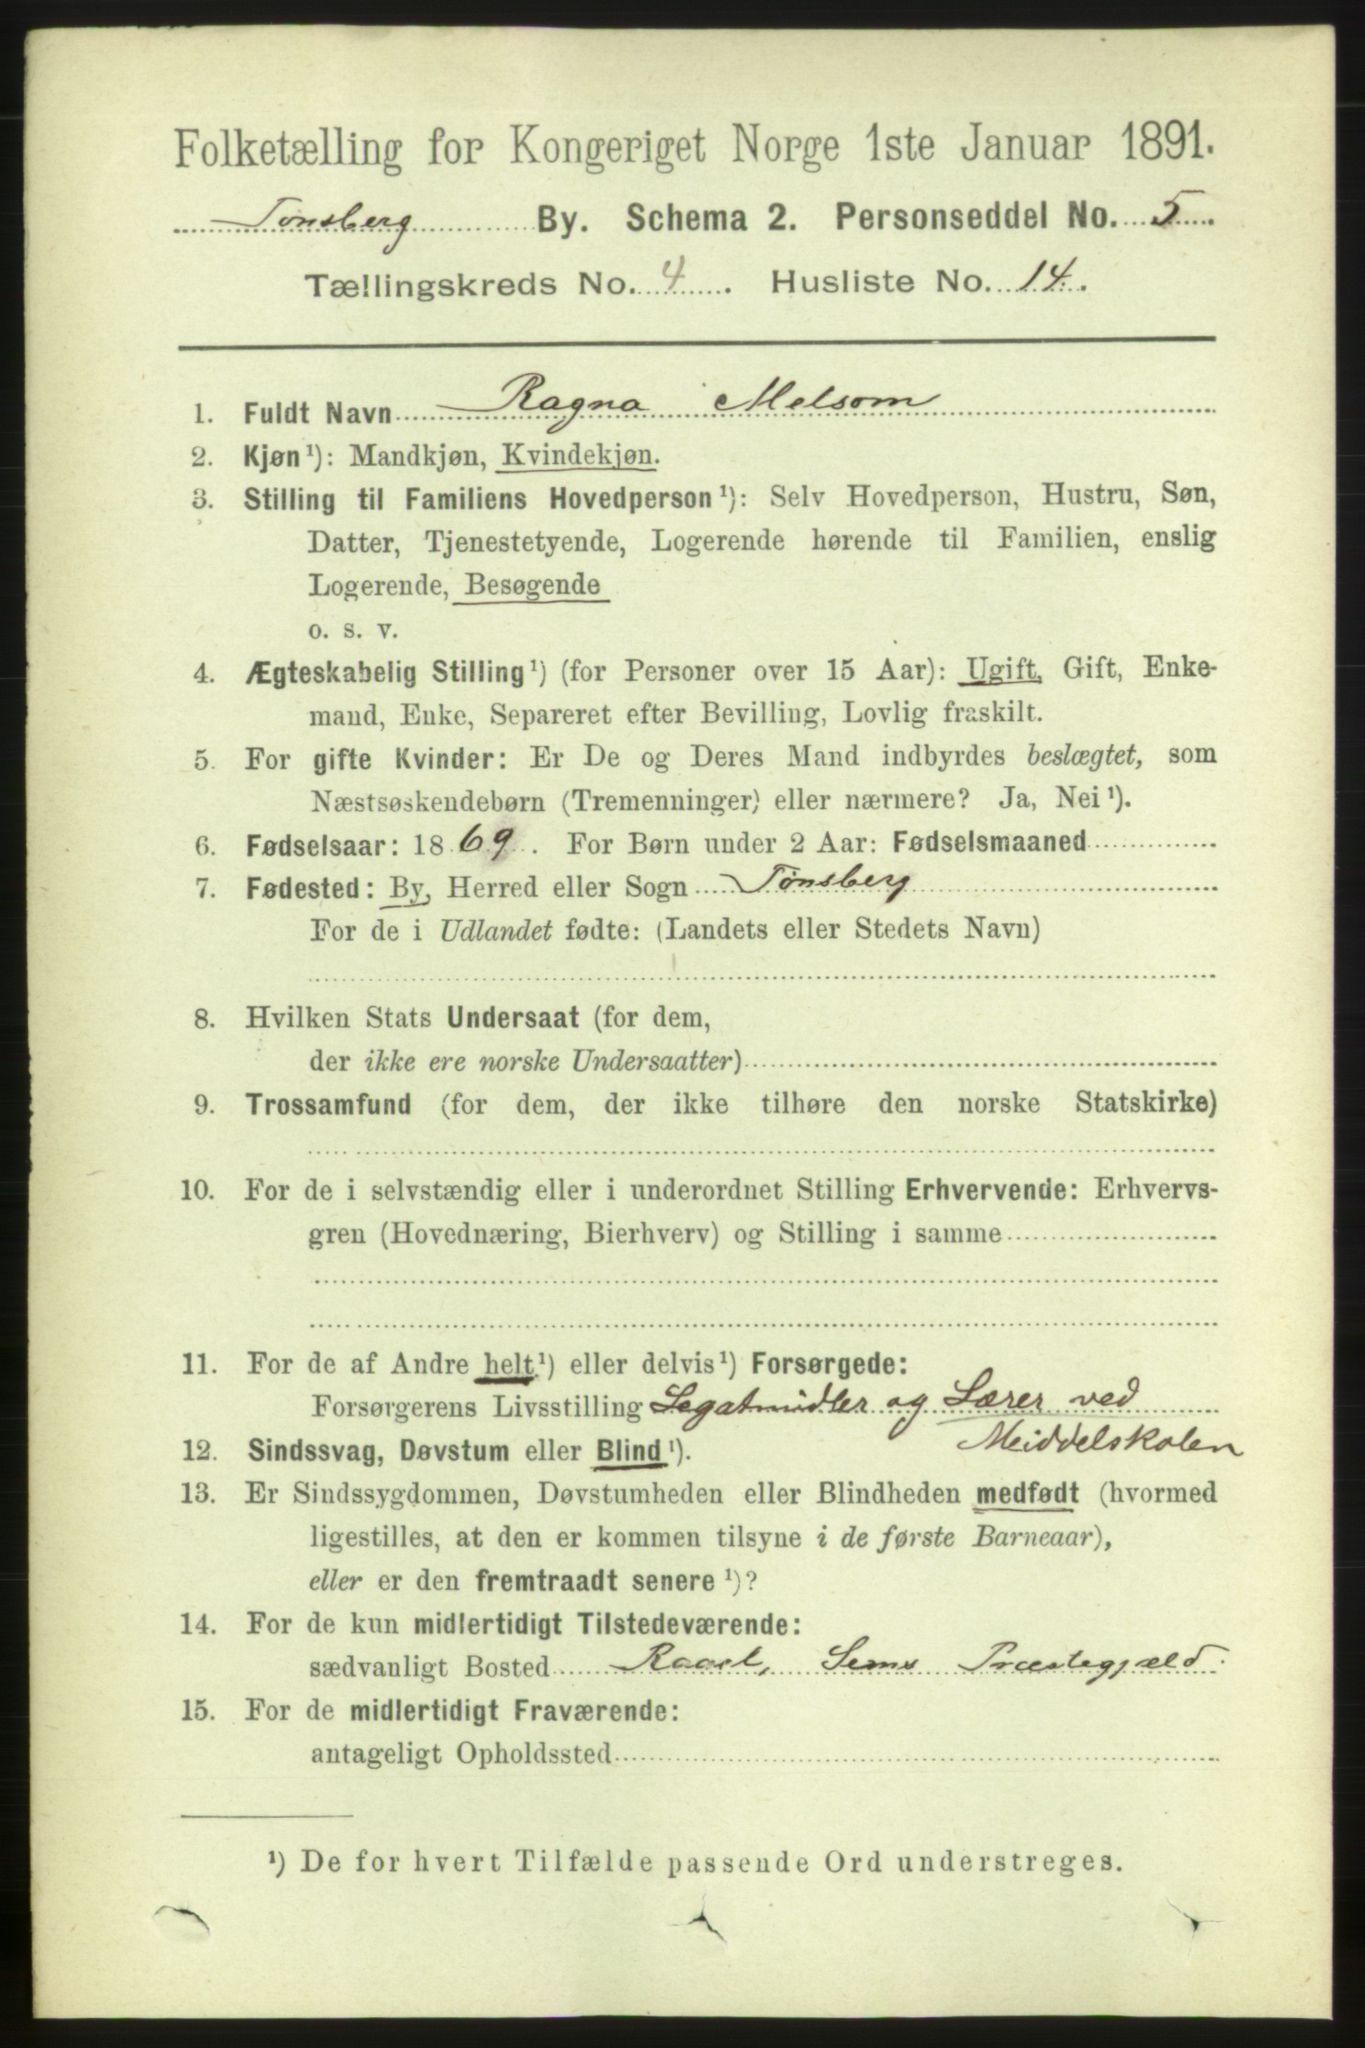 Folketælling for Kongeriget Norge 1ste Januar 1891.
Tønsberg By. Schema 2. Personseddel No. 5.
Tællingskreds No. 4. Husliste No. 14.
1. Fuldt Navn Ragna Melsom
2. Kjøn¹): Mandkjøn, Kvindekjøn.
3. Stilling til Familiens Hovedperson¹): Selv Hovedperson, Hustru, Søn,
Datter, Tjenestetyende, Logerende hørende til Familien, enslig
Logerende, Besøgende
o. s. v.
4. Ægteskabelig Stilling¹) (for Personer over 15 Aar): Ugift, Gift, Enke-
mand, Enke, Separeret efter Bevilling, Lovlig fraskilt.
5. For gifte Kvinder: Er De og Deres Mand indbyrdes beslægtet, som
Næstsøskendebørn (Tremenninger) eller nærmere? Ja, Nei¹).
6. Fødselsaar: 1869. For Børn under 2 Aar: Fødselsmaaned
7. Fødested: By, Herred eller Sogn Tønsberg
For de i Udlandet fødte: (Landets eller Stedets Navn)
8. Hvilken Stats Undersaat (for dem,
der ikke ere norske Undersaatter)
9. Trossamfund (for dem, der ikke tilhøre den norske Statskirke)
10. For de i selvstændig eller i underordnet Stilling Erhvervende: Erhvervs-
gren (Hovednæring, Bierhverv) og Stilling i samme
11. For de af Andre helt¹) eller delvis¹) Forsørgede:
Forsørgerens Livsstilling Legatmidler og Lærer ved
Meiddelskolen
12. Sindssvag, Døvstum eller Blind¹).
13. Er Sindssygdommen, Døvstumheden eller Blindheden medfødt (hvormed
ligestilles, at den er kommen tilsyne i de første Barneaar),
eller er den fremtraadt senere¹)?
14. For de kun midlertidigt Tilstedeværende:
sædvanligt Bosted Raael, Sems Præstegjæld.
15. For de midlertidigt Fraværende:
antageligt Opholdssted
¹) De for hvert Tilfælde passende Ord understreges.